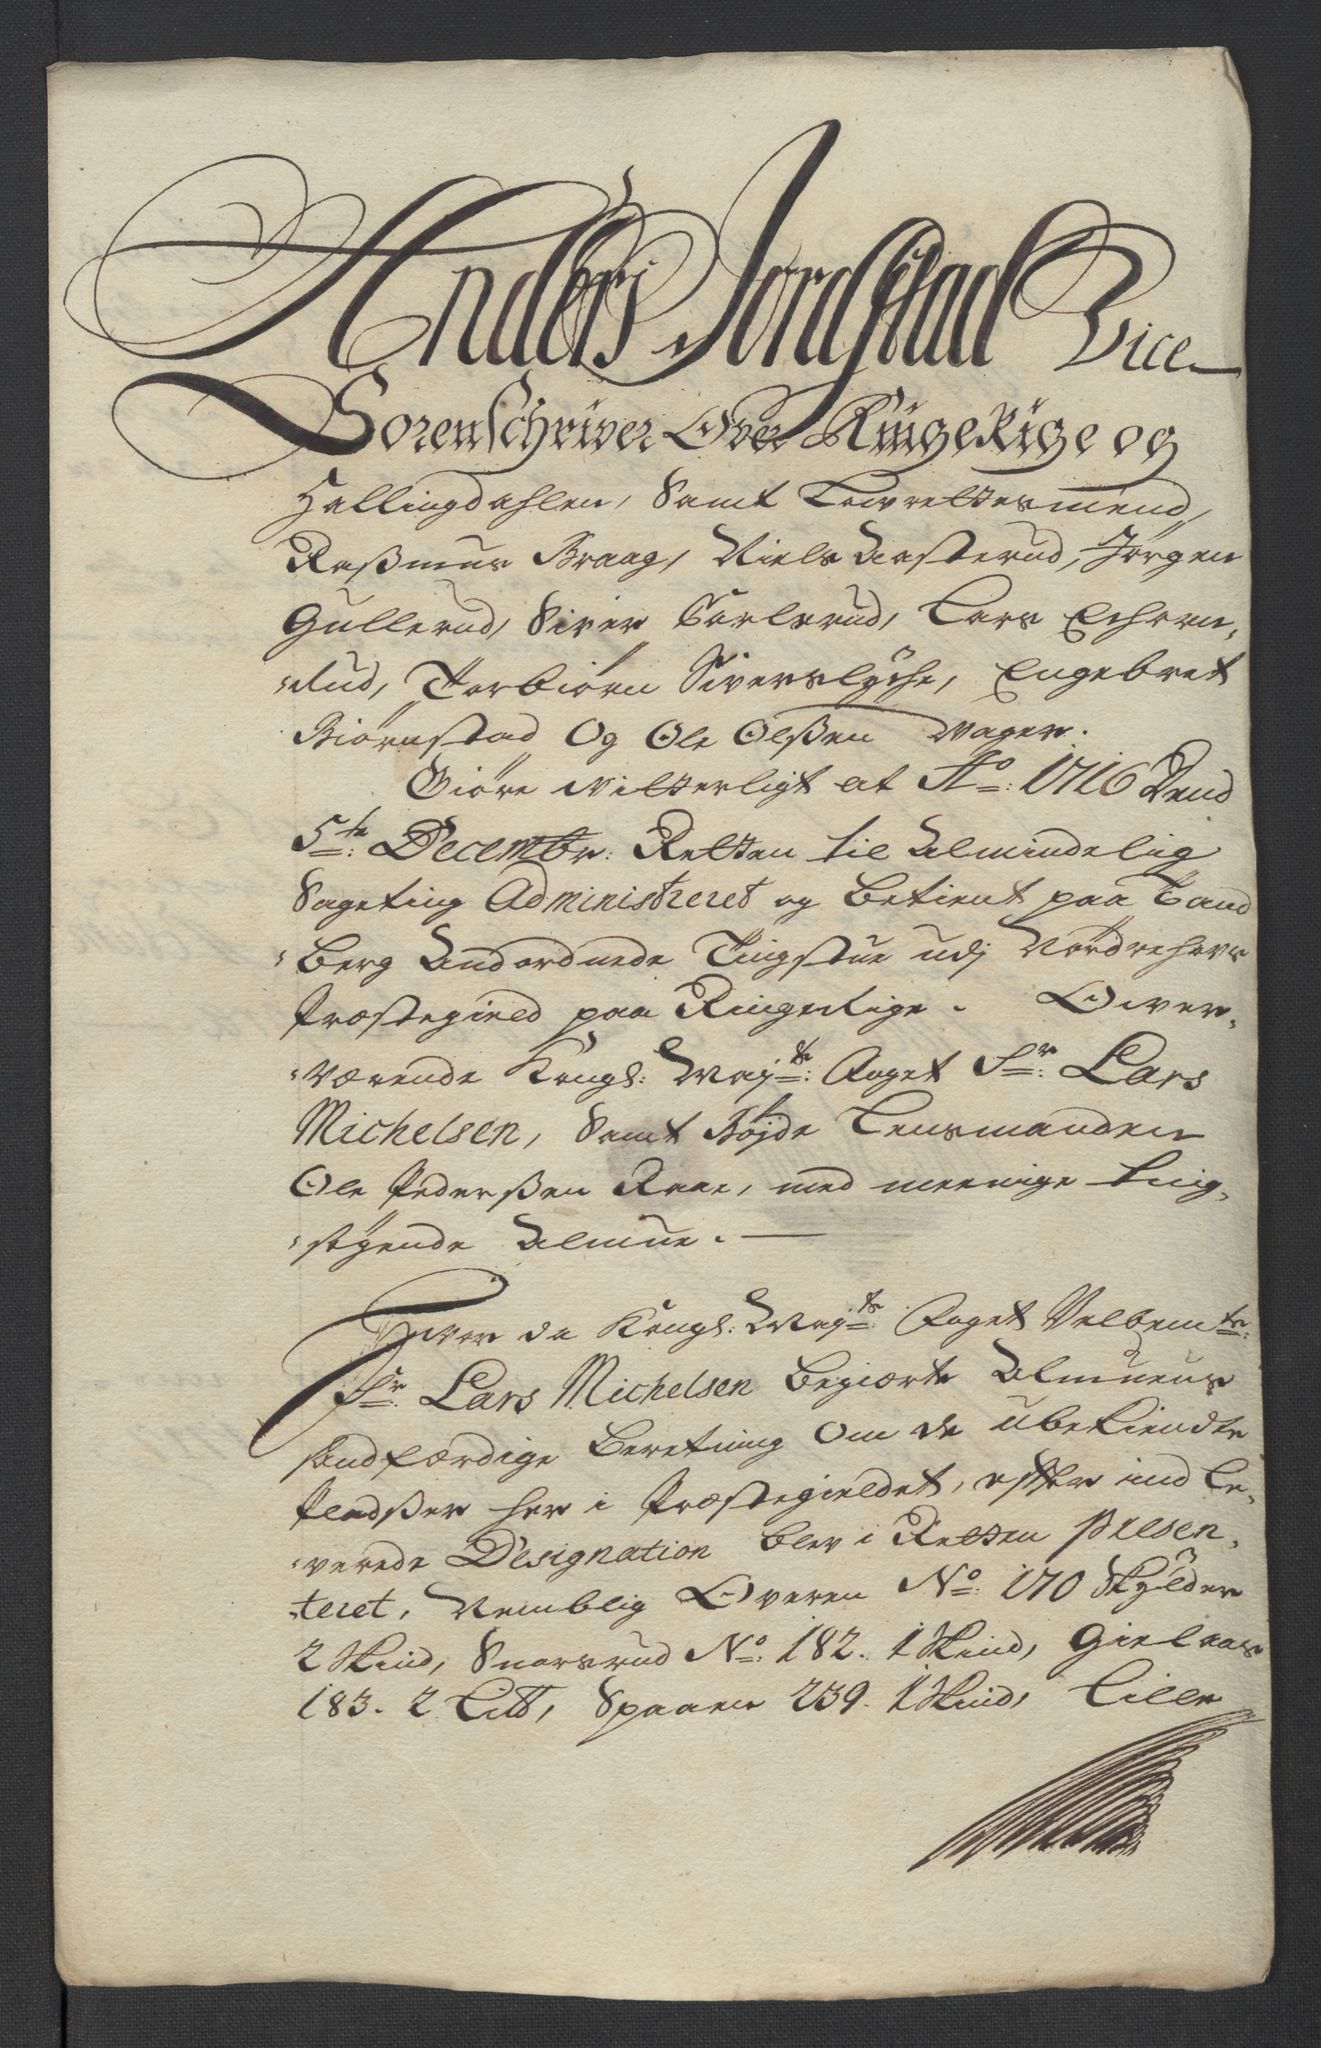 Anders Jordstad Vice
Sorenschriver Over RingeRige og
Hallingdahlen, Samt Lavrettesmend,
Raßmus Braag, Niels Aasterud, Jørgen
Gullerud, Siver Sørlerud, Lars Echorn,
„rud, Torbiørn Siverslyche, Engebret
Biørnstad Og Ole Olßen Mager.
Giøre vitterligt at Ao: 1716 Dend
5te: Decembr: Retten til Almindelig
Sageting Administreret og betient paa Tand
„berg Andordnede Tingstue udj Nørdrehovs
Præstegield paa Ringerige. Over,
„værende Kongl: Mayts: Foget Sr: Lars
Michelsen, Samt Bøjde Lensmanden
Ole Pederßen Raae, med meenige Ting,
„søgende Almue. —
Hvor da Kongl: Mayts: Foget Velbemte:
Sr: Lars Michelsen begiærte Almuens
sandfærdige beretning Om de ubekiendte
Pladßer her i Præstegieldet, efter ind le,
„verede Designation blev i Retten præsen,
„teret, Nemblig Overen No: 170 Skylder
2 Skind, Snarsrud No: 182. 1 Skind, Gielaas
183. 2 Lib, Spaaen 239. 1 Skind, Lille